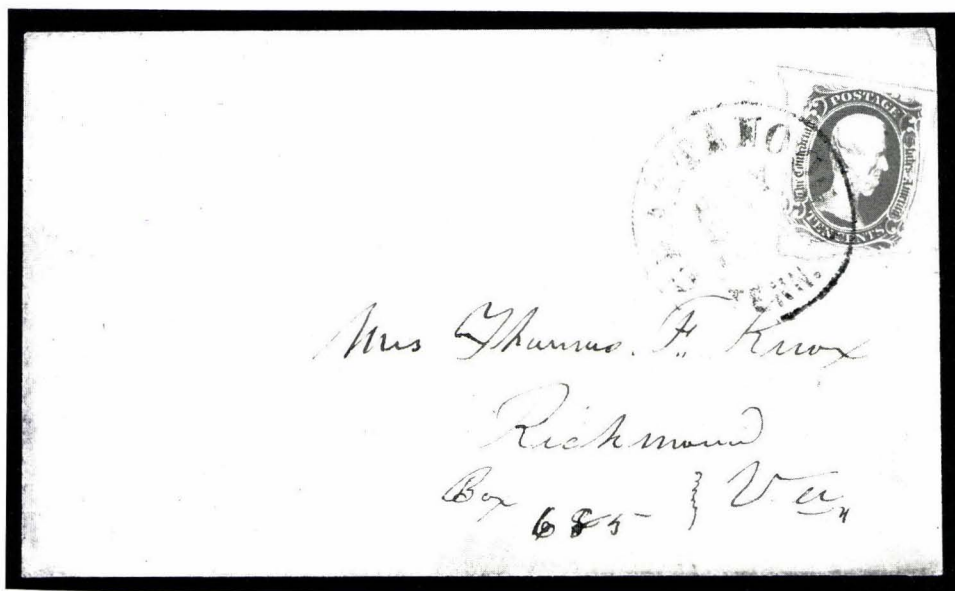 POSTAGE
The Confederate States America
TEN CENTS
TENN.
Mrs Thomas. F. Knox
Richmond
Box 685 } Va,,